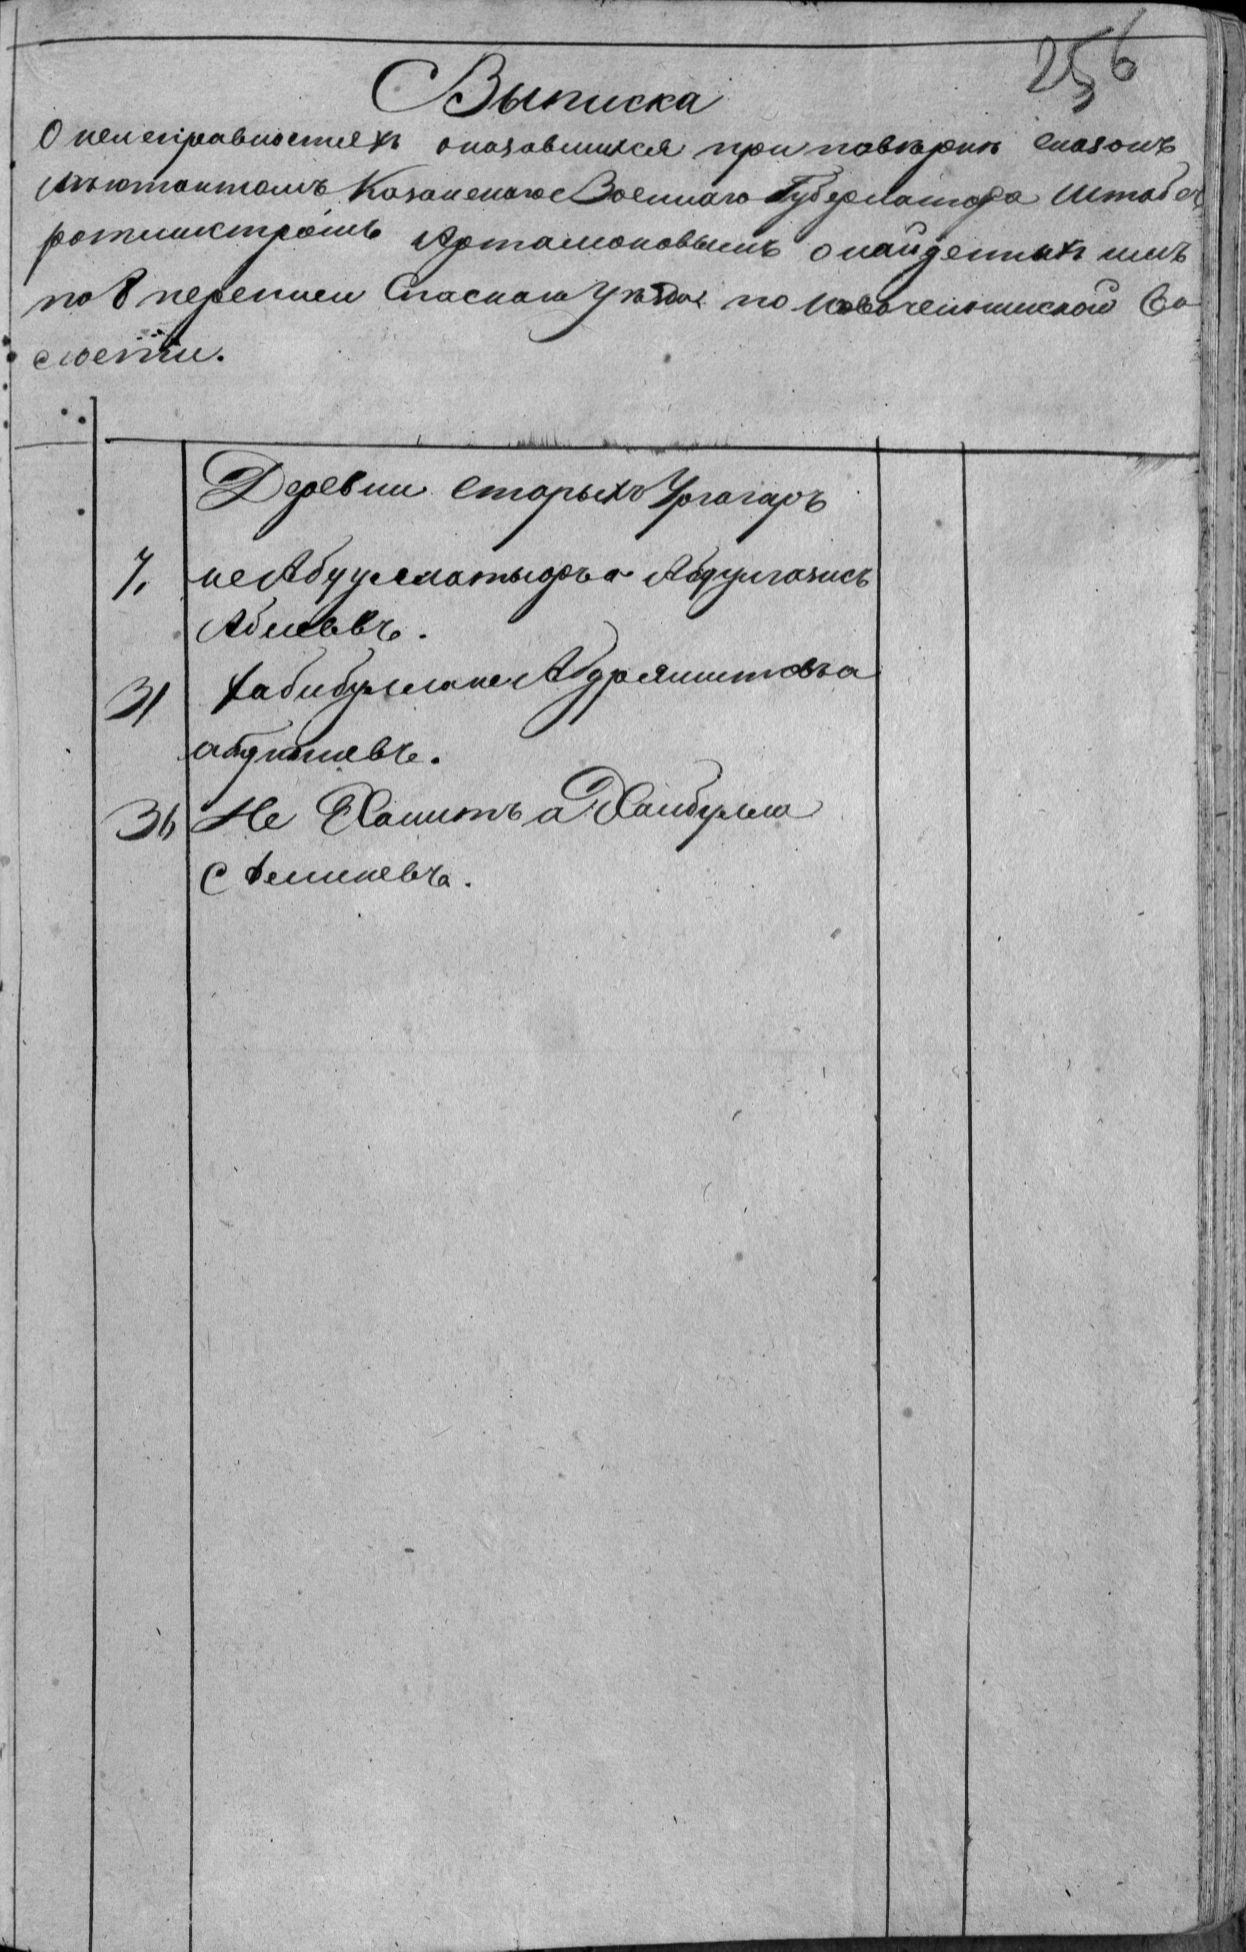 256
Выписка
О неисправностяхъ оказавшихся при поверкѣ сказокъ
Адъютантомъ Казанскаго Военнаго Губернатора Штабсъ
ротмистромъ Артамоновымъ о найденныхъ имъ
по 8 переписи Спаскаго Уѣзда по Новочелнинской Во
лости.
Деревни Старыхъ Ургагаръ
7. не а Абдулгазисъ
Абле евъ.
31 Хабибулла не Абдряшитовъ а
36 Не Хамитъ а Хаибулла